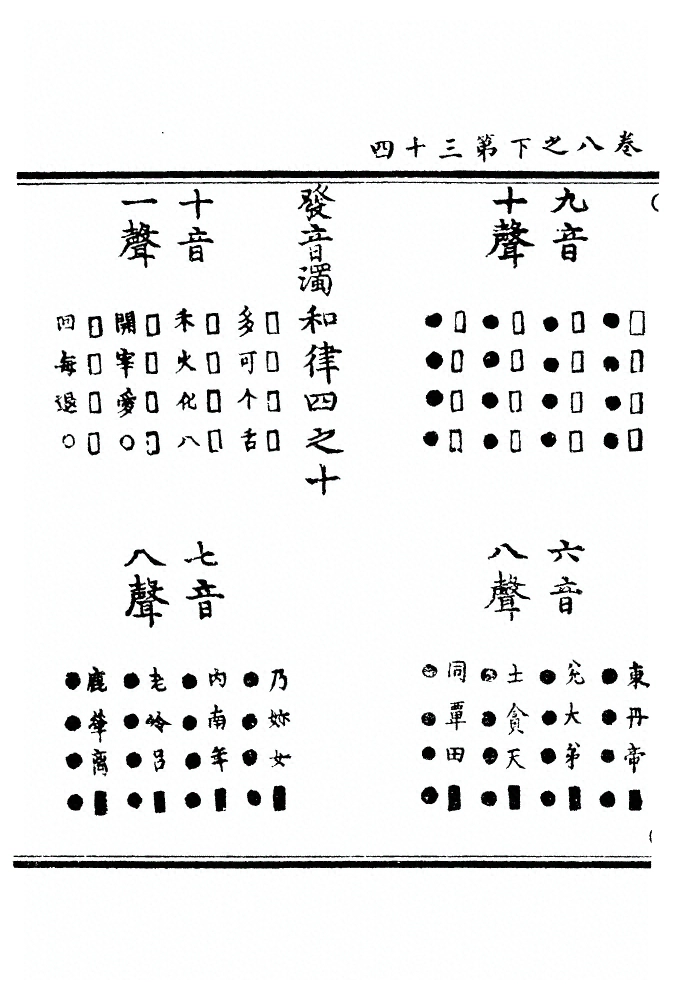 卷八之下第三十四
九音
十聲
□□□□
●●●●
□□□□
●●●●
□□□□
●●●●
□□□□
●●●●
六音
八聲
東丹帝■
●●●●
兌大弟■
●●●●
土貪天■
●●●●
同覃田■
●●●●
發音濁和律四之十
十音
一聲
□□□□
多可个舌
□□□□
禾火化八
□□□□
開宰愛○
□□□□
回每退○
七音
八聲
乃妳女■
●●●●
内南年■
●●●●
老冷呂■
●●●●
鹿犖离■
●●●●